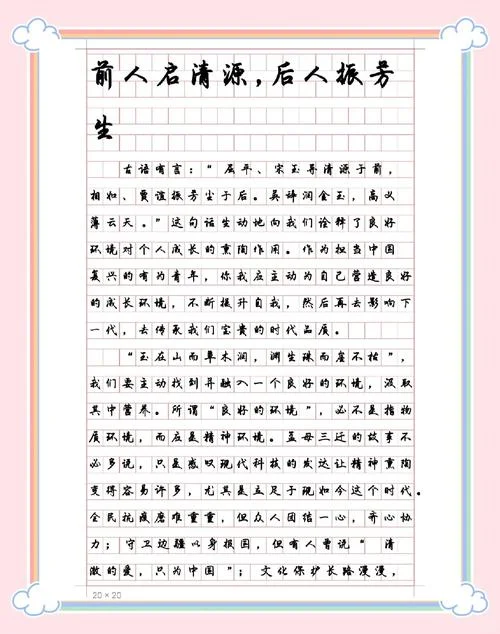 前人启清源，后人振芳
生
古语有言：“屈平、宋玉导清源于前，
相如、贾谊振芳尘于后。英辞润金玉，高义
薄云天。”这句话生动地向我们诠释了良好
环境对个人成长的熏陶作用。作为担当中国
复兴的有为青年，你我应主动为自己营造良好
的成长环境，不断提升自我，然后再去影响下
一代，去传承我们宝贵的时代品质。
“玉在山而草木润，渊生珠而崖不枯”，
我们要主动找到并融入一个良好的环境，汲取
其中营养。所谓“良好的环境”，必不是指物
质环境，而应是精神环境。孟母三迁的故事不
必多说，只是感叹现代科技的发达让精神熏陶
变得容易许多，尤其是立足于现如今这个时代。
全民抗疫磨难重重，但众人团结一心，齐心协
力；守卫边疆以身报国，但有人曾说“清
澈的爱，只为中国”；文化保护长路漫漫，
20×20